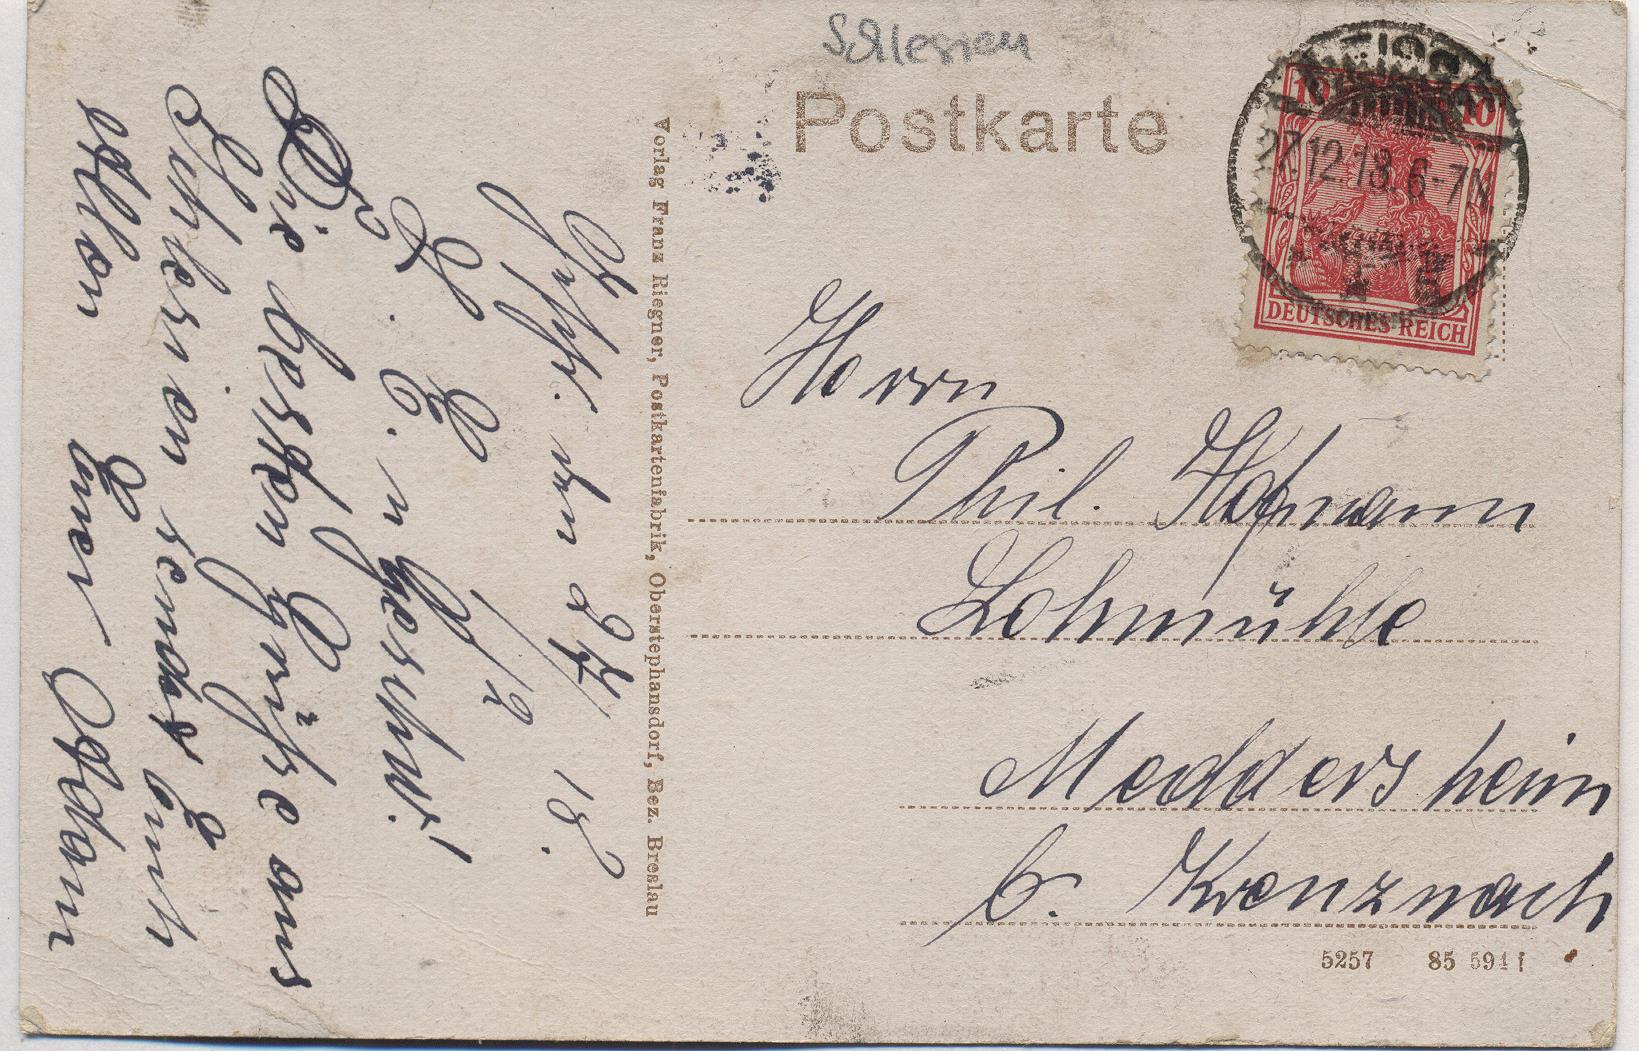 Schlesien
Postkarte
10 10
27.12.18. 6-7N.
DEUTSCHES REICH
Verlag Franz Riegner, Postkartenfabrik, Oberstephansdorf, Bez. Breslau
den 27/12 18.
L. E. u Geschw.!
Die besten Grüße aus
Schlesien sendet Euch
allen Euer Adam
Herrn
Phil. Hofmann
Lohmühle
Meddersheim
b. Kreuznach
5257 85 594